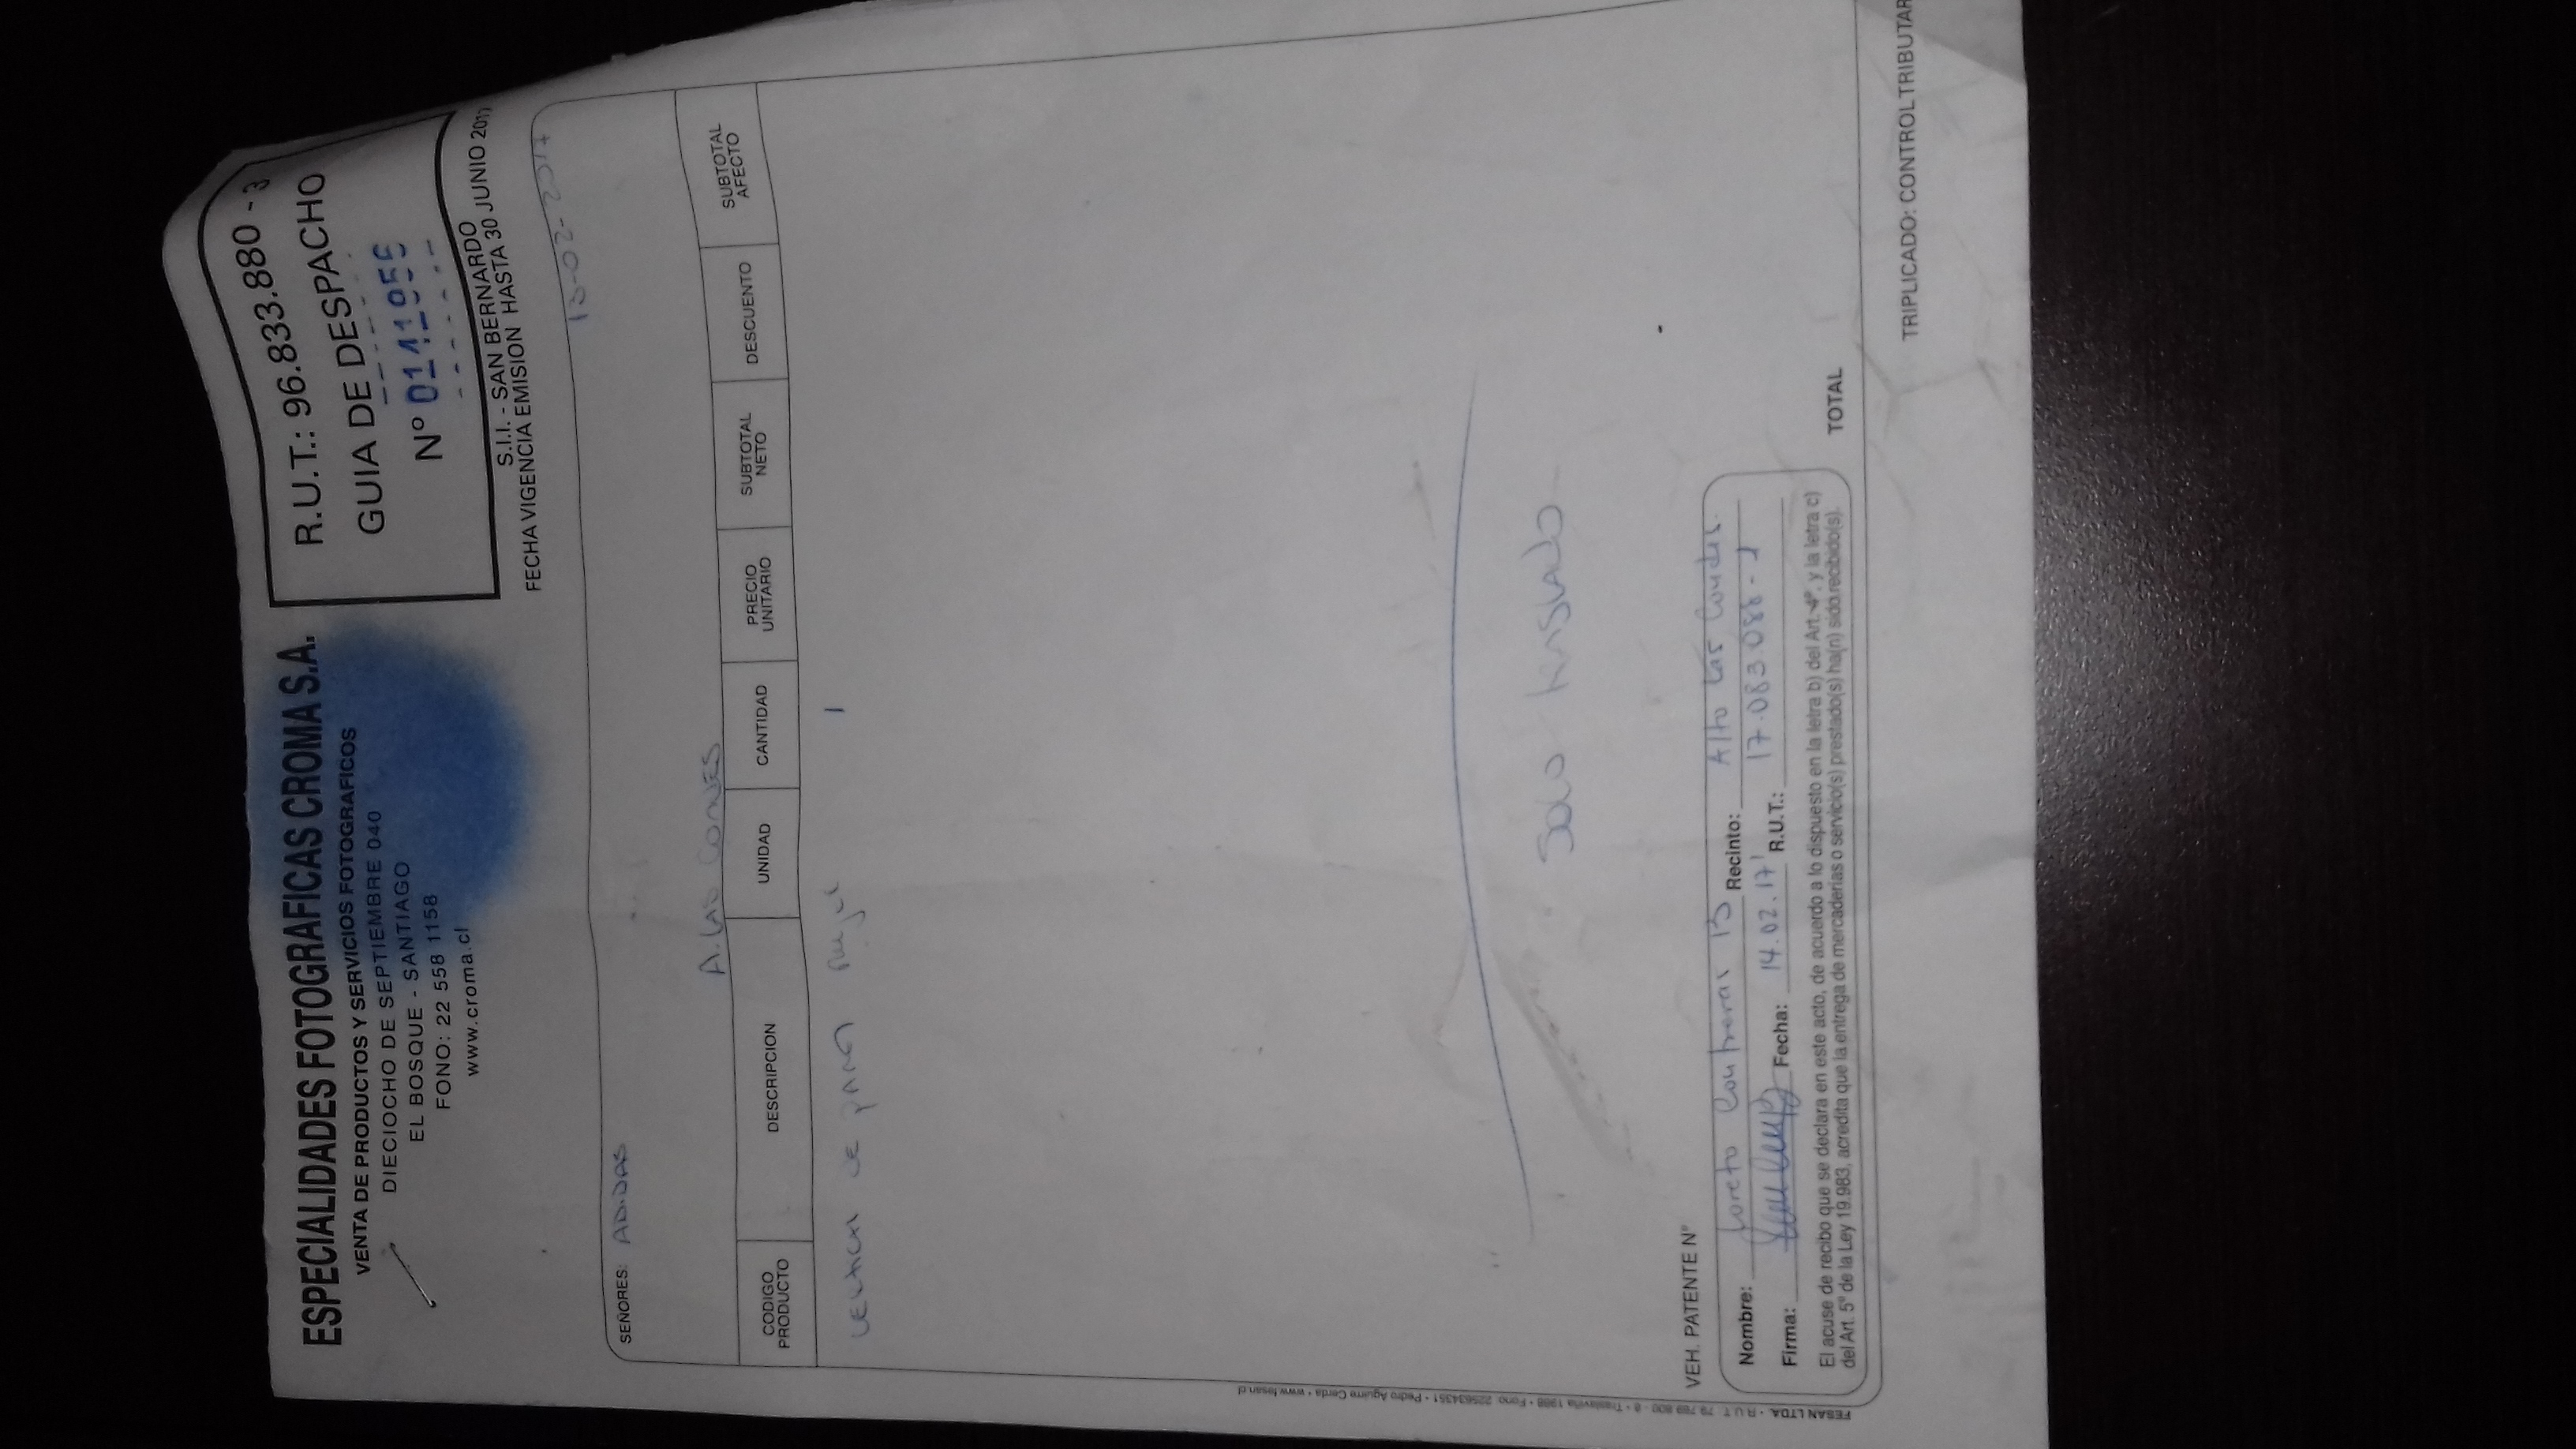 ESPECIALIDADES FOTOGRAFICAS CROMA S.A.
VENTA DE PRODUCTOS Y SERVICIOS FOTOGRAFICOS
DIECIOCHO DE SEPTIEMBRE 040
EL BOSQUE - SANTIAGO
FONO: 22 558 1158
www.croma.cl
R.U.T.: 96.833.880 - 3
GUIA DE DESPACHO
Nº 0141956
S.I.I. - SAN BERNARDO
FECHA VIGENCIA EMISION HASTA 30 JUNIO 2017
13-02-2017
SEÑORES: ADIDAS
A. LAS CONDES
CODIGO PRODUCTO DESCRIPCION UNIDAD CANTIDAD PRECIO UNITARIO SUBTOTAL NETO DESCUENTO SUBTOTAL AFECTO
DE PARED 1
SOLO TRASLADO
VEH. PATENTE Nº
Nombre: Loreto Contreras B Recinto: Alto Las Condes.
Firma: Fecha: 14.02.17 R.U.T.: 17.083.088-1
El acuse de recibo que se declara en este acto, de acuerdo a lo dispuesto en la letra b) del Art. 4º, y la letra c)
del Art. 5º de la Ley 19.983, acredita que la entrega de mercaderias o servicio(s) prestado(s) ha(n) sido recibido(s).
TOTAL
TRIPLICADO: CONTROL TRIBUTAR
FESAN LTDA. • R.U.T. 79.769.800 - 8 • Traslaviña 1988 • Fono: 225634351 • Pedro Aguirre Cerda • www.fesan.cl